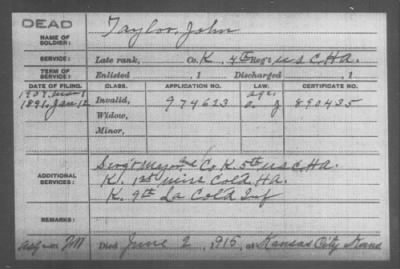 DEAD
NAME OF SOLDIER: Taylor, John
SERVICE: Late rank, Co. K, 4th Reg't U S C H A.
TERM OF SERVICE: Enlisted , 1 Discharged , 1
DATE OF FILING. CLASS. APPLICATION NO. LAW. CERTIFICATE NO.
1907
1891, Jan 12 Invalid, 974623 890435
Widow,
Minor,
ADDITIONAL SERVICES: Co K. 5th U S C H A.
K. 1st Cold. H A.
K. 9th La Cold Inf
REMARKS:
Died June 2, 1915, at Kansas City Kans